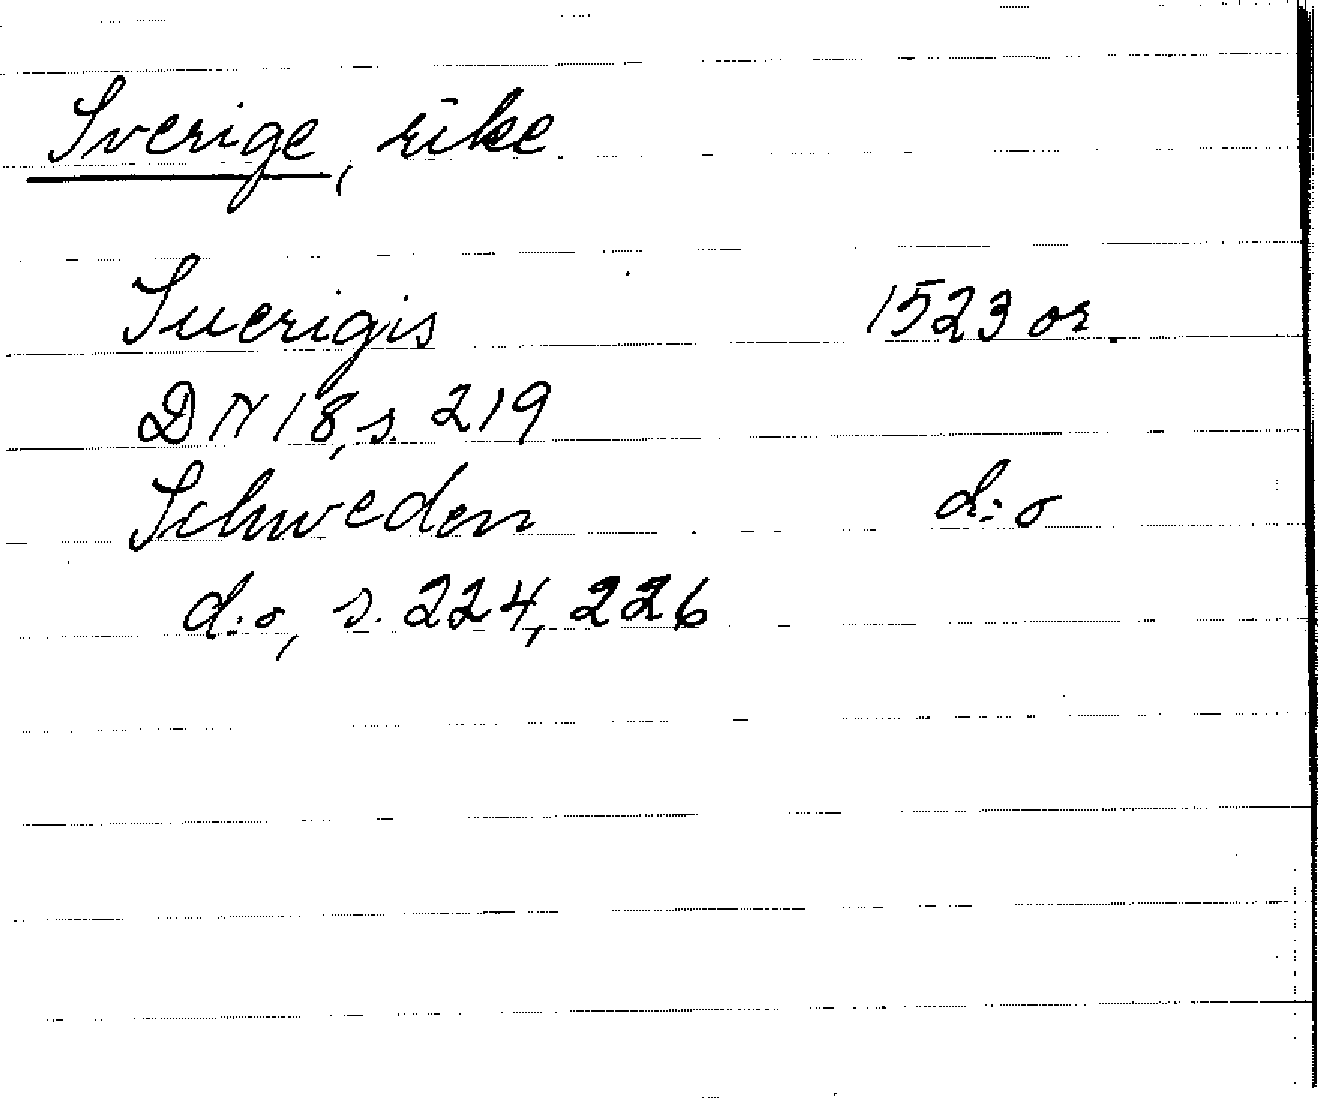 Sverige, rike
Suerigis 1523 or.
DN 18, s. 219
Schweden d:o
d:o, s. 224, 226